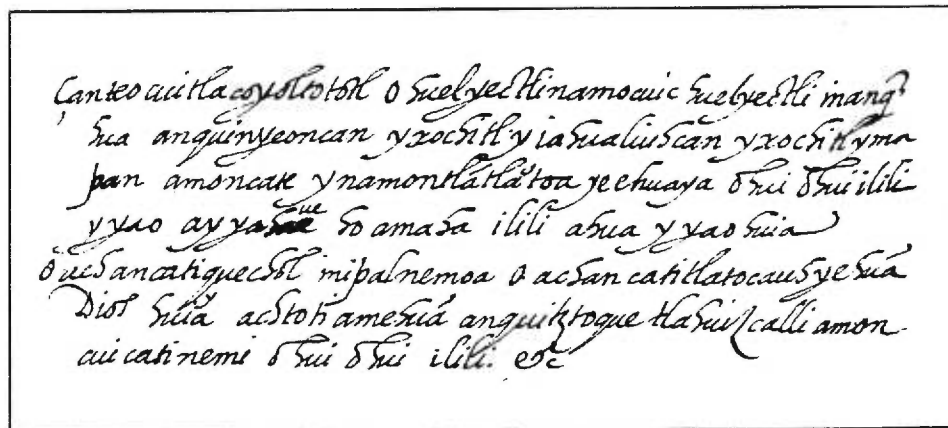 Çan teocuitla coyoltototl O huel yectli namocuic huel yectli in anq̃
hua anquin ye oncan y xochitl y iahualiuhcan y xochitl yma
pan amoncate yn amontlatlàtoa ye ehuaya ohui ohui ilili
y yao ayyahaue ho amaha ilili ahua y yao huia
O achancatiquechol mipalnemoa o achancatitlatocauh yehuã
Dios huiã achtoti amehuã anquitztoque tlahuizcalli amon
cuicatinemi ohui ohui ilili. etc